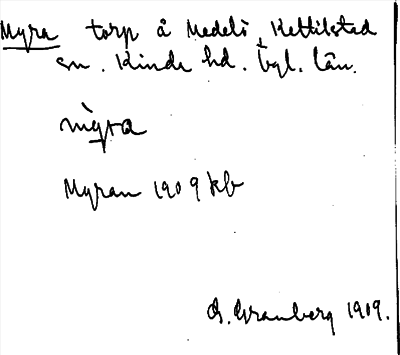 Myra torp å Medelö, Kettilstad
sn. Kinda hd. Ögl. län.
mỳra
Myran 1909 kb
G. Granberg 1909.